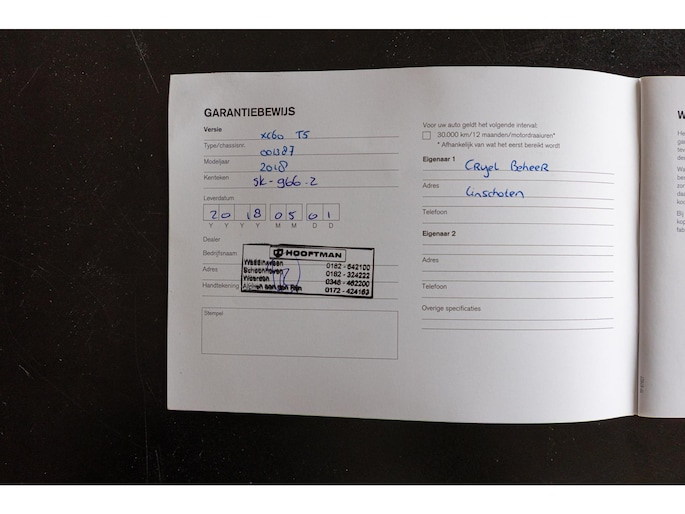 GARANTIEBEWIJS
Versie
XC60 T5
Type/chassisnr.
001387
Modeljaar
2018
Kenteken
SK-966-Z
Leverdatum
20 18 05 01
Y Y Y Y M M D D
Dealer
Bedrijfsnaam
HOOFTMAN
Waddinxveen 0182 - 642100
Adres
Schoonhoven 0182 - 324222
Woerden 0348 - 462200
Handtekening
Alphen aan den Rijn 0172 - 424163
Stempel
Voor uw auto geldt het volgende interval:
30.000 km/12 maanden/motordraaiuren*
* Afhankelijk van wat het eerst bereikt wordt
Eigenaar 1
Beheer
Adres
Linschoten
Telefoon
Eigenaar 2
Adres
Telefoon
Overige specificaties
W